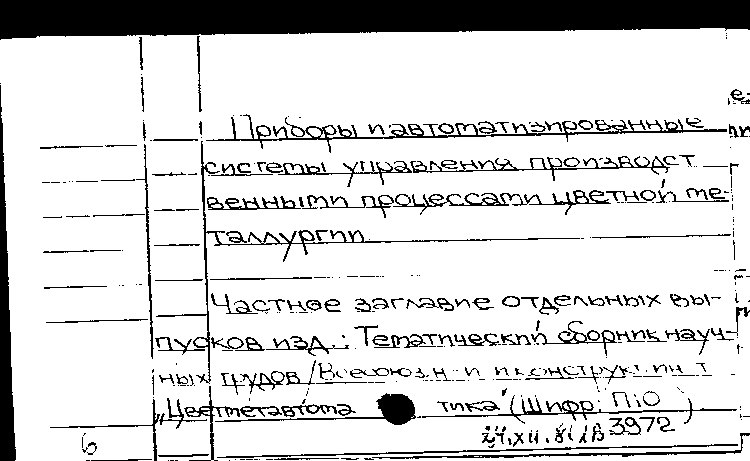 Приборы и автоматизированные
системы управления производст
венными процессами цветной ме-
таллургии
Частное заглавие отдельных вы-
пусков изд.: Тематический сборник науч-
ных трудов / Всесоюзн. и
"Цветметавтома тика" (Шифр: П10
24.XII.81 3972 )
6